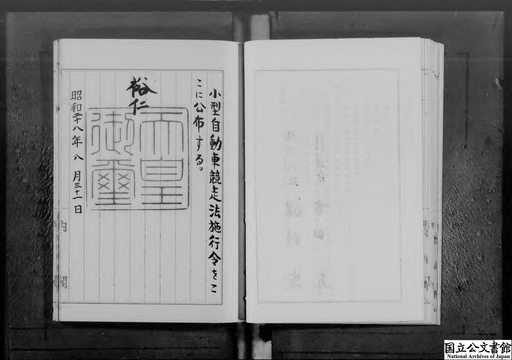 小型自動車競走法施行令をこ
こに公布する。
裕仁
天皇
御璽
昭和二十八年八月三十一日
内閣
国立公文書館
National Archives of Japan